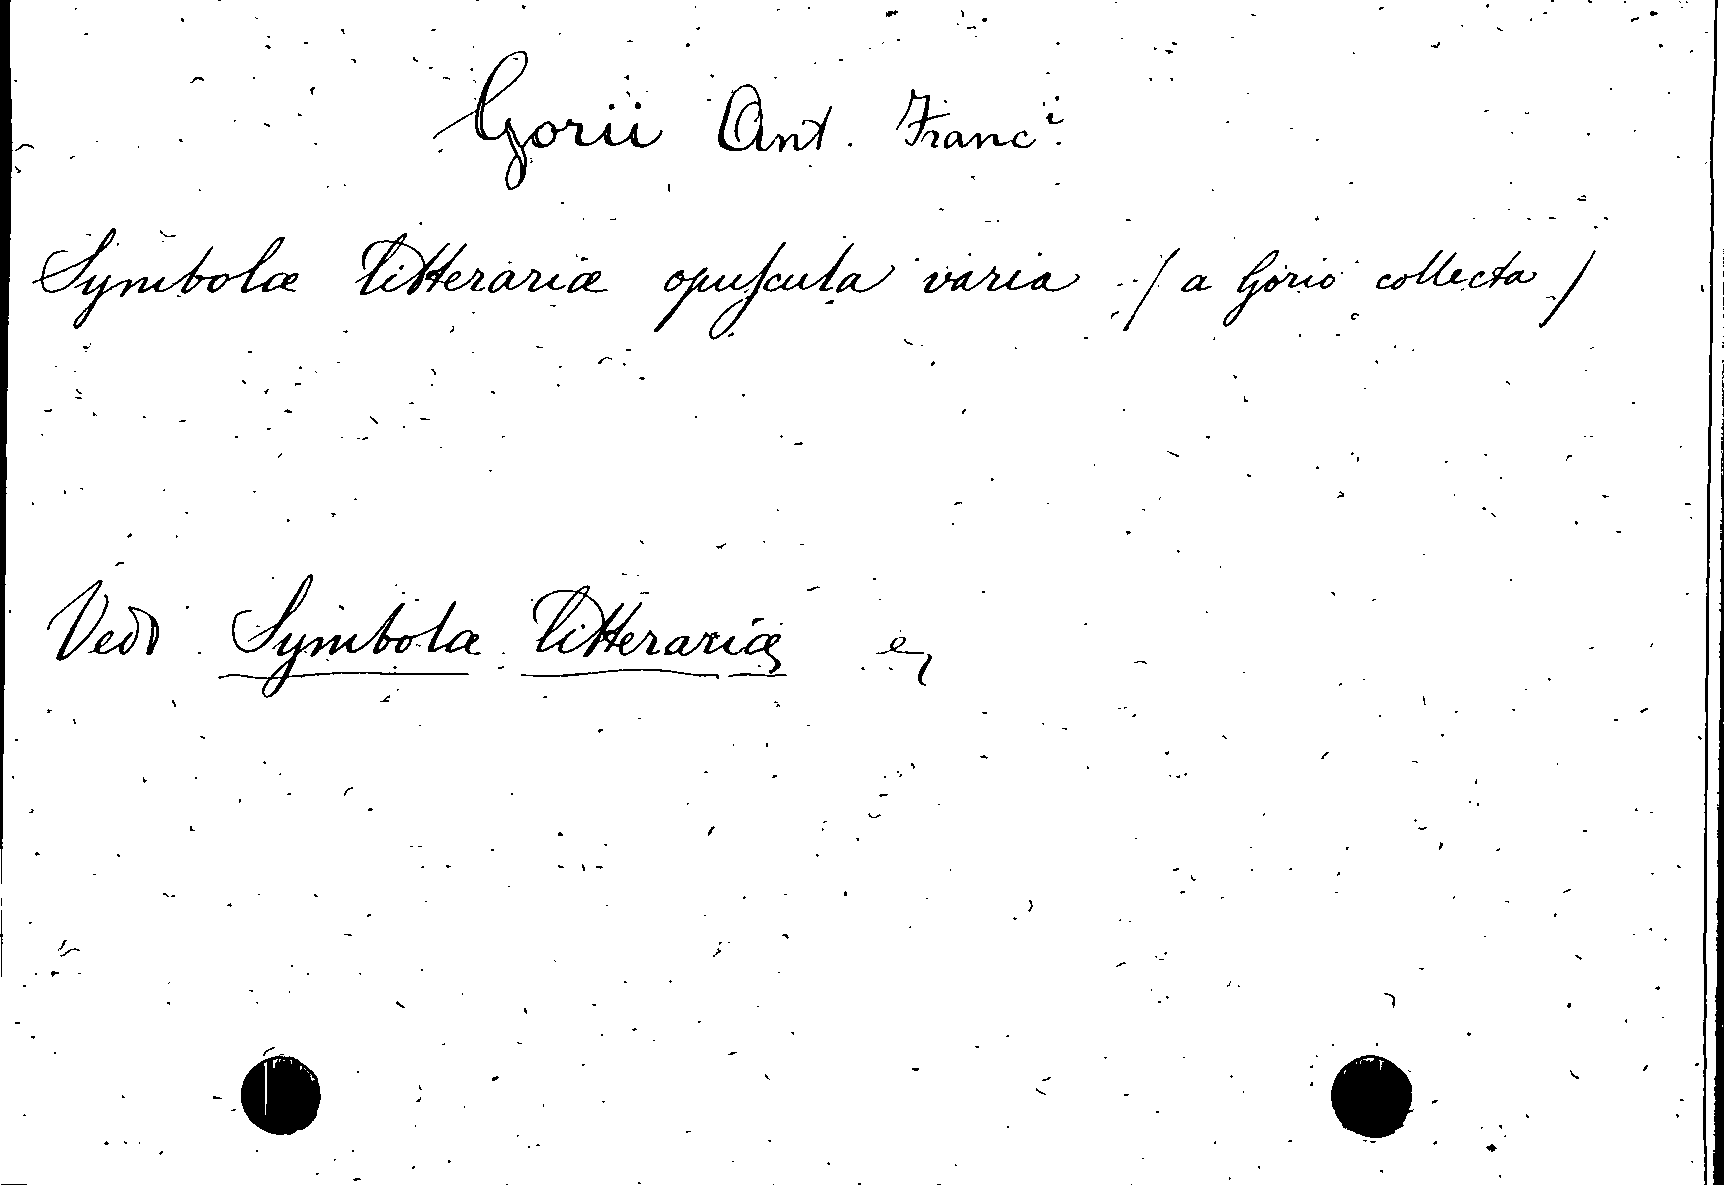 Gorii Ant. Franc.i
Symbolæ litterariæ opuscula varia / a Gorio collecta /
Vedi Symbolæ litterariæ